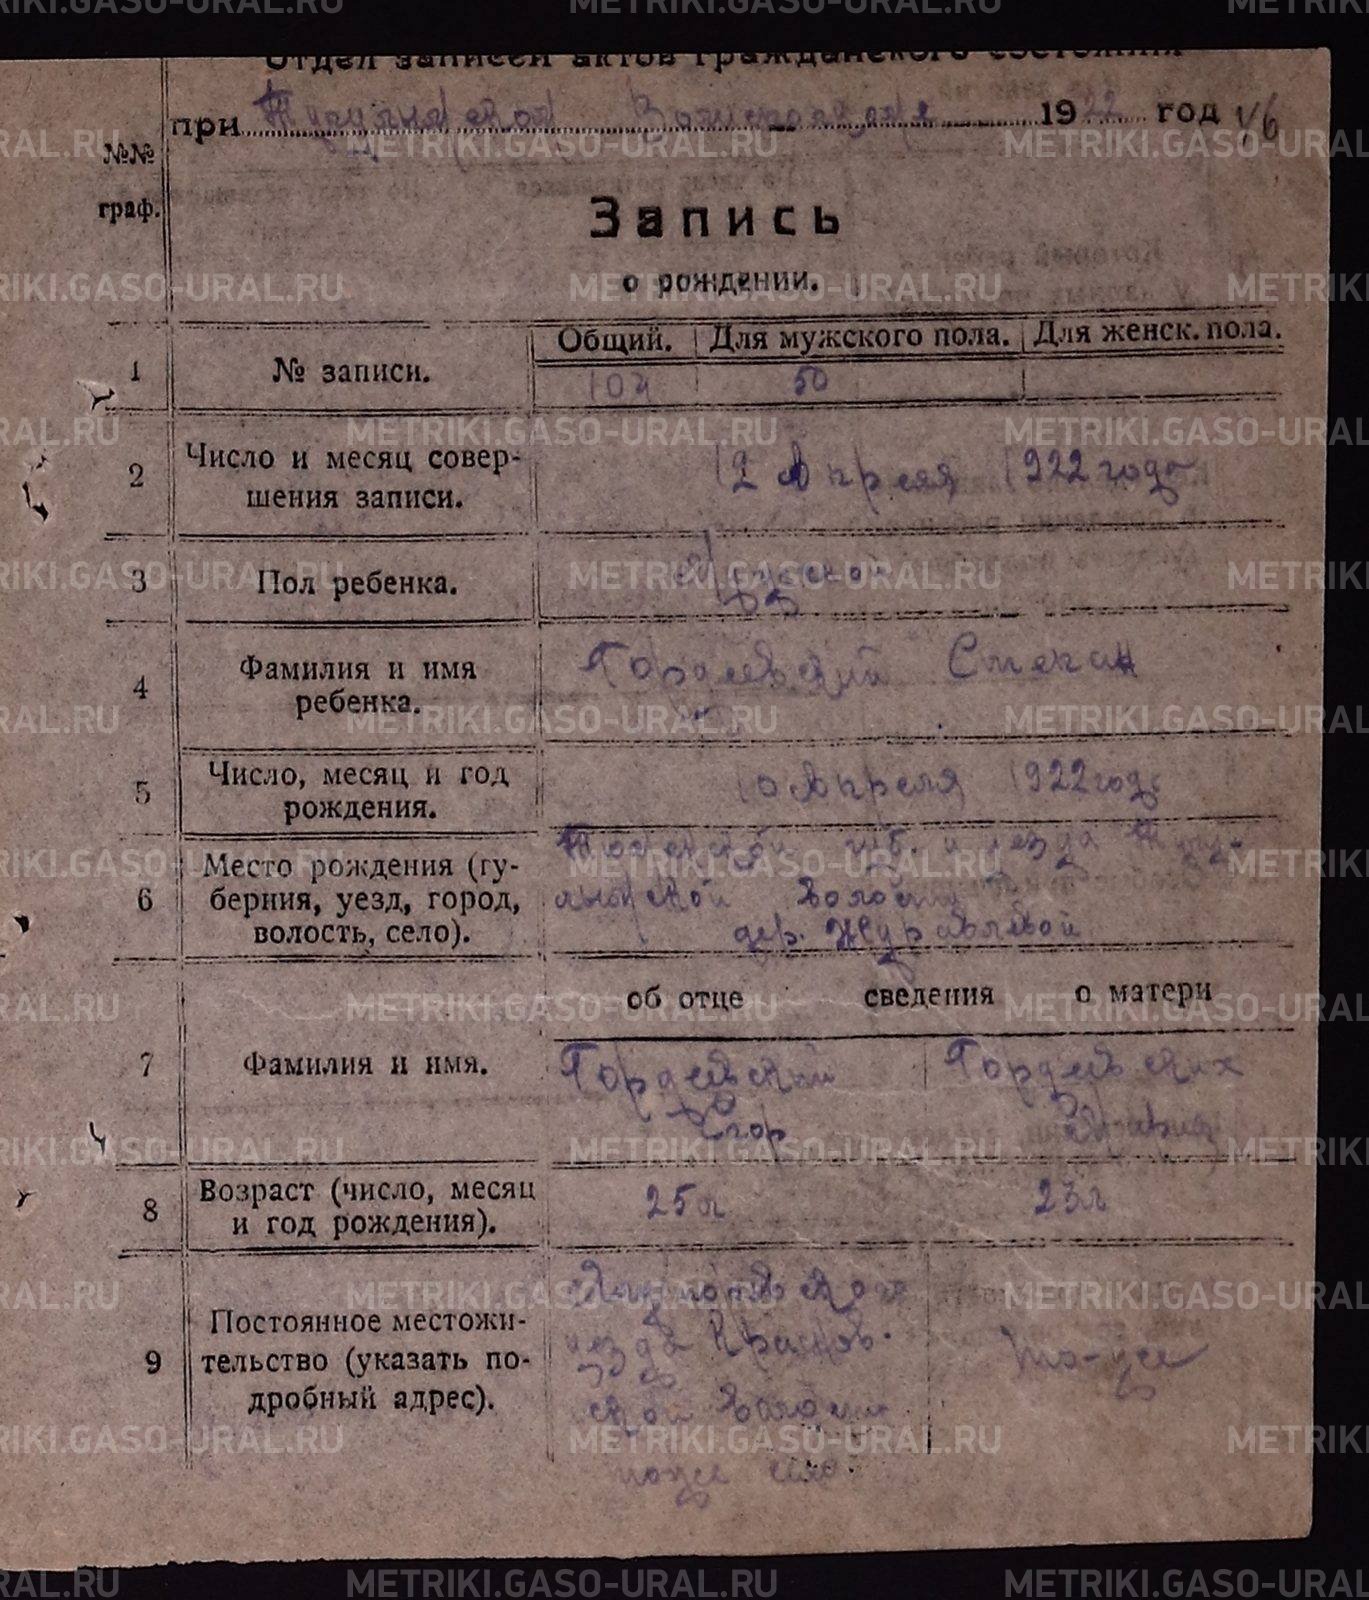 METRIKI.GASO-URAL.RU
Отдел записей актов гражданского состояния
при Тугулымской 1922 год
№№ граф.
Запись
о рождении.
Общий. Для мужского пола. Для женск. пола.
1 № записи. 104 50
2 Число и месяц совер-
шения записи. 12 Апреля 1922 года
3 Пол ребенка. Мужской
4 Фамилия и имя
ребенка. Гордиевский Степан
5 Число, месяц и год
рождения. 10 Апреля 1922 года
6 Место рождения (гу-
берния, уезд, город,
волость, село).
Тюменской губ. и уезда Тугу-
лымской волости
дер. Журавлевой
об отце сведения о матери
7 Фамилия и имя.
Гордиевский Гордиевских
Егор
8 Возраст (число, месяц
и год рождения). 25 л 23 г
9 Постоянное местожи-
тельство (указать по-
дробный адрес).
уезда
ской волости
тоже село
то-же